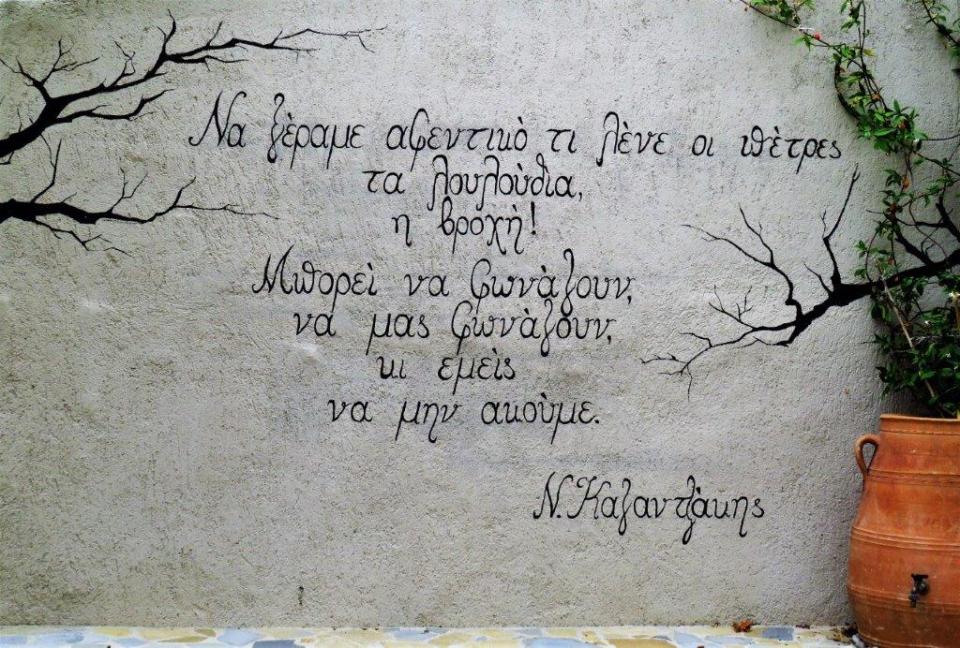 Να ξέραμε αφεντικό τι λένε οι πέτρες
τα λουλούδια,
η βροχή!
Μπορεί να φωνάζουν,
να μας φωνάζουν,
κι εμείς
να μην ακούμε.
Ν. Καζαντζάκης